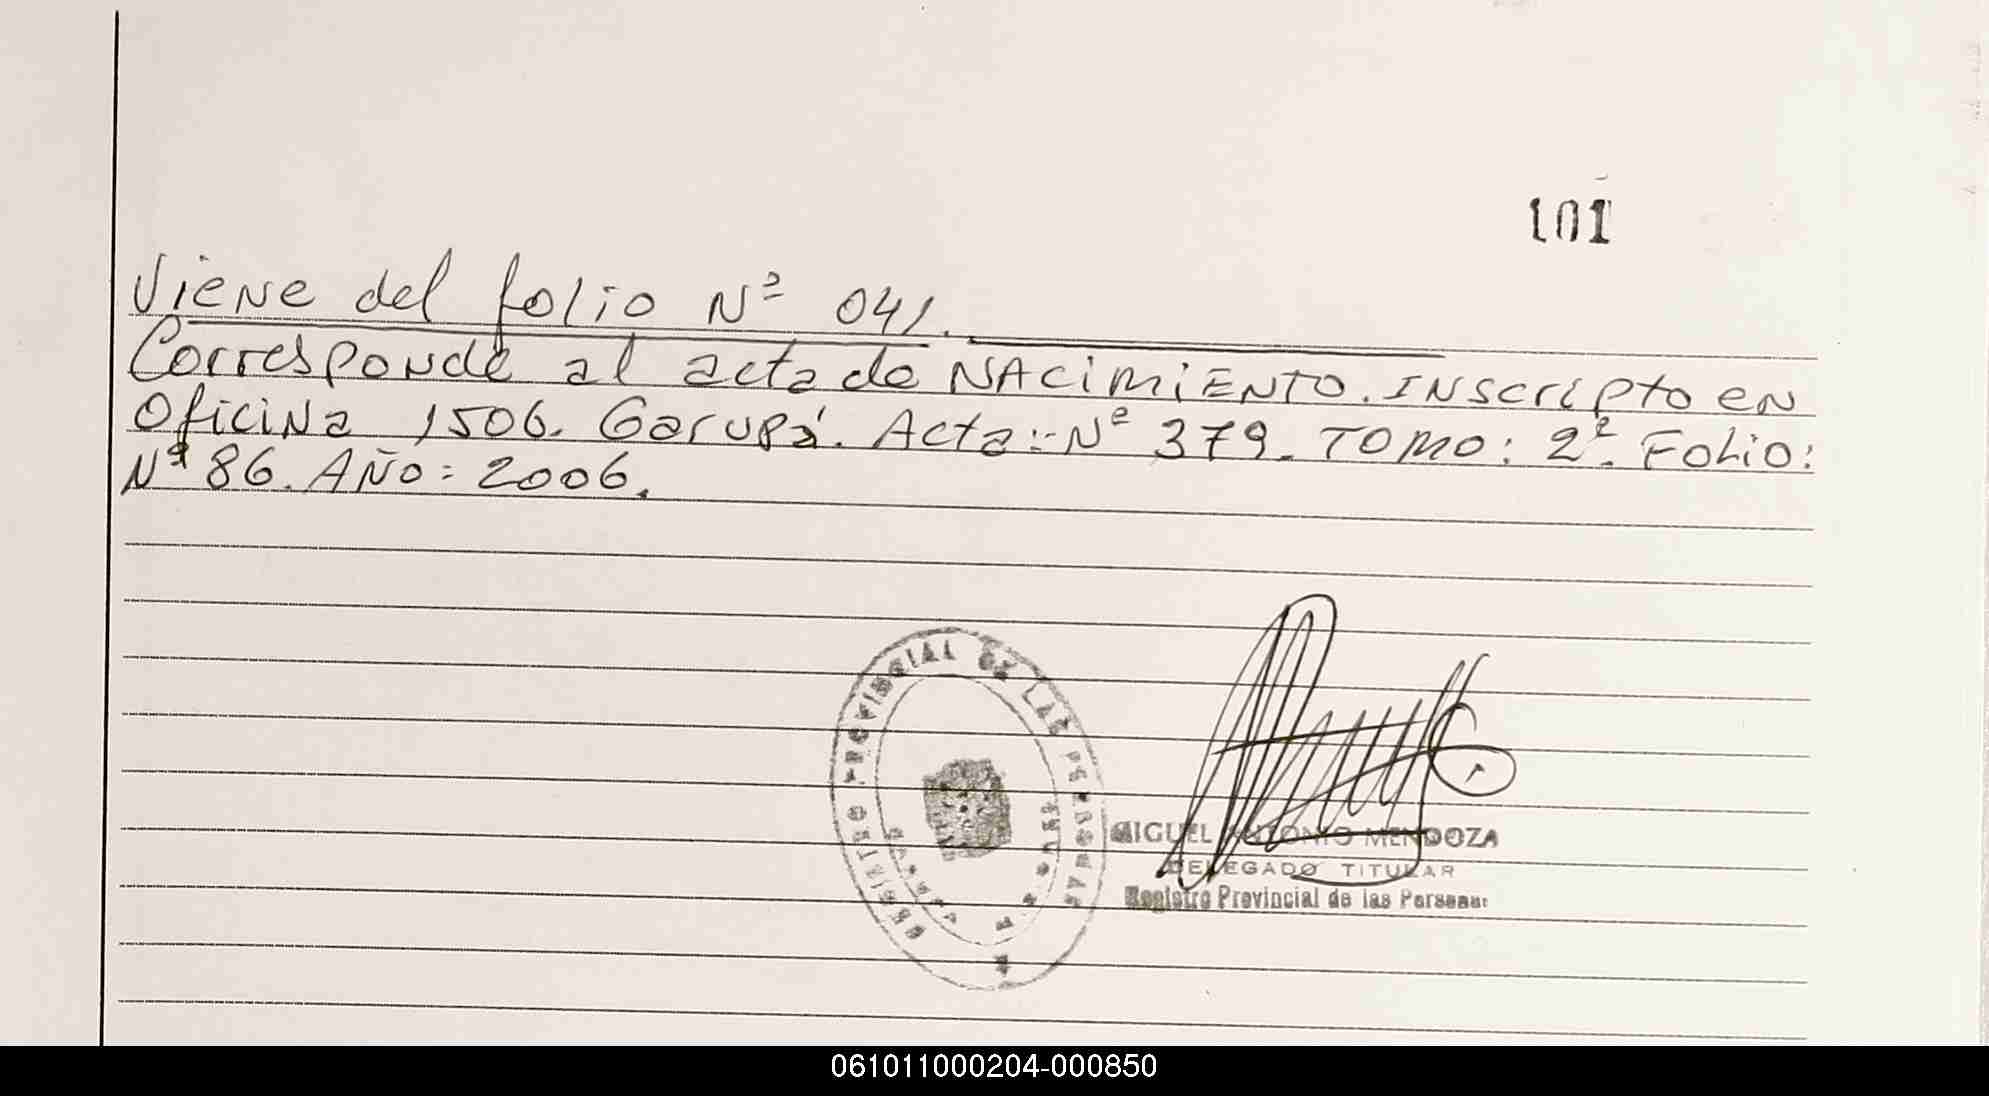 101
Viene del folio Nº 041.
Corresponde al acta de NACIMIENTO. INScripto en
Oficina 1506. Garupá. Acta:-Nº 379. TOMO: 2º. Folio:
Nº 86. AÑO: 2006.
REGISTRO PROVINCIAL DE LAS PERSONAS
MIGUEL ANTONIO MENDOZA
DELEGADO TITULAR
Registro Provincial de las Personas
061011000204-000850